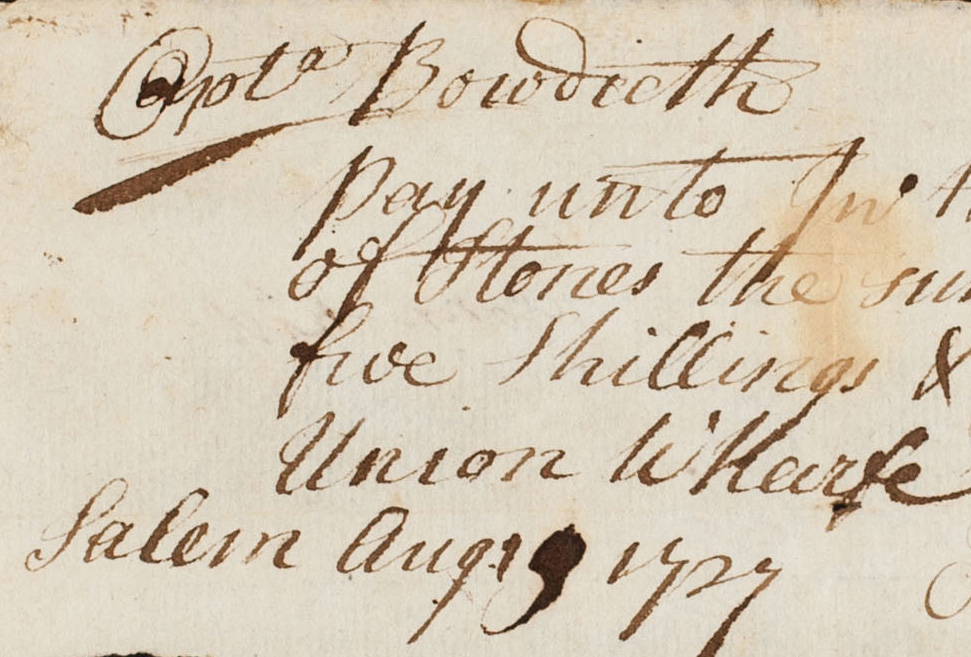 Capta Bowdieth
pay unto Jn.
of Stones the
five Shillings &
Union Wharfe
Salem Augt 9 1727